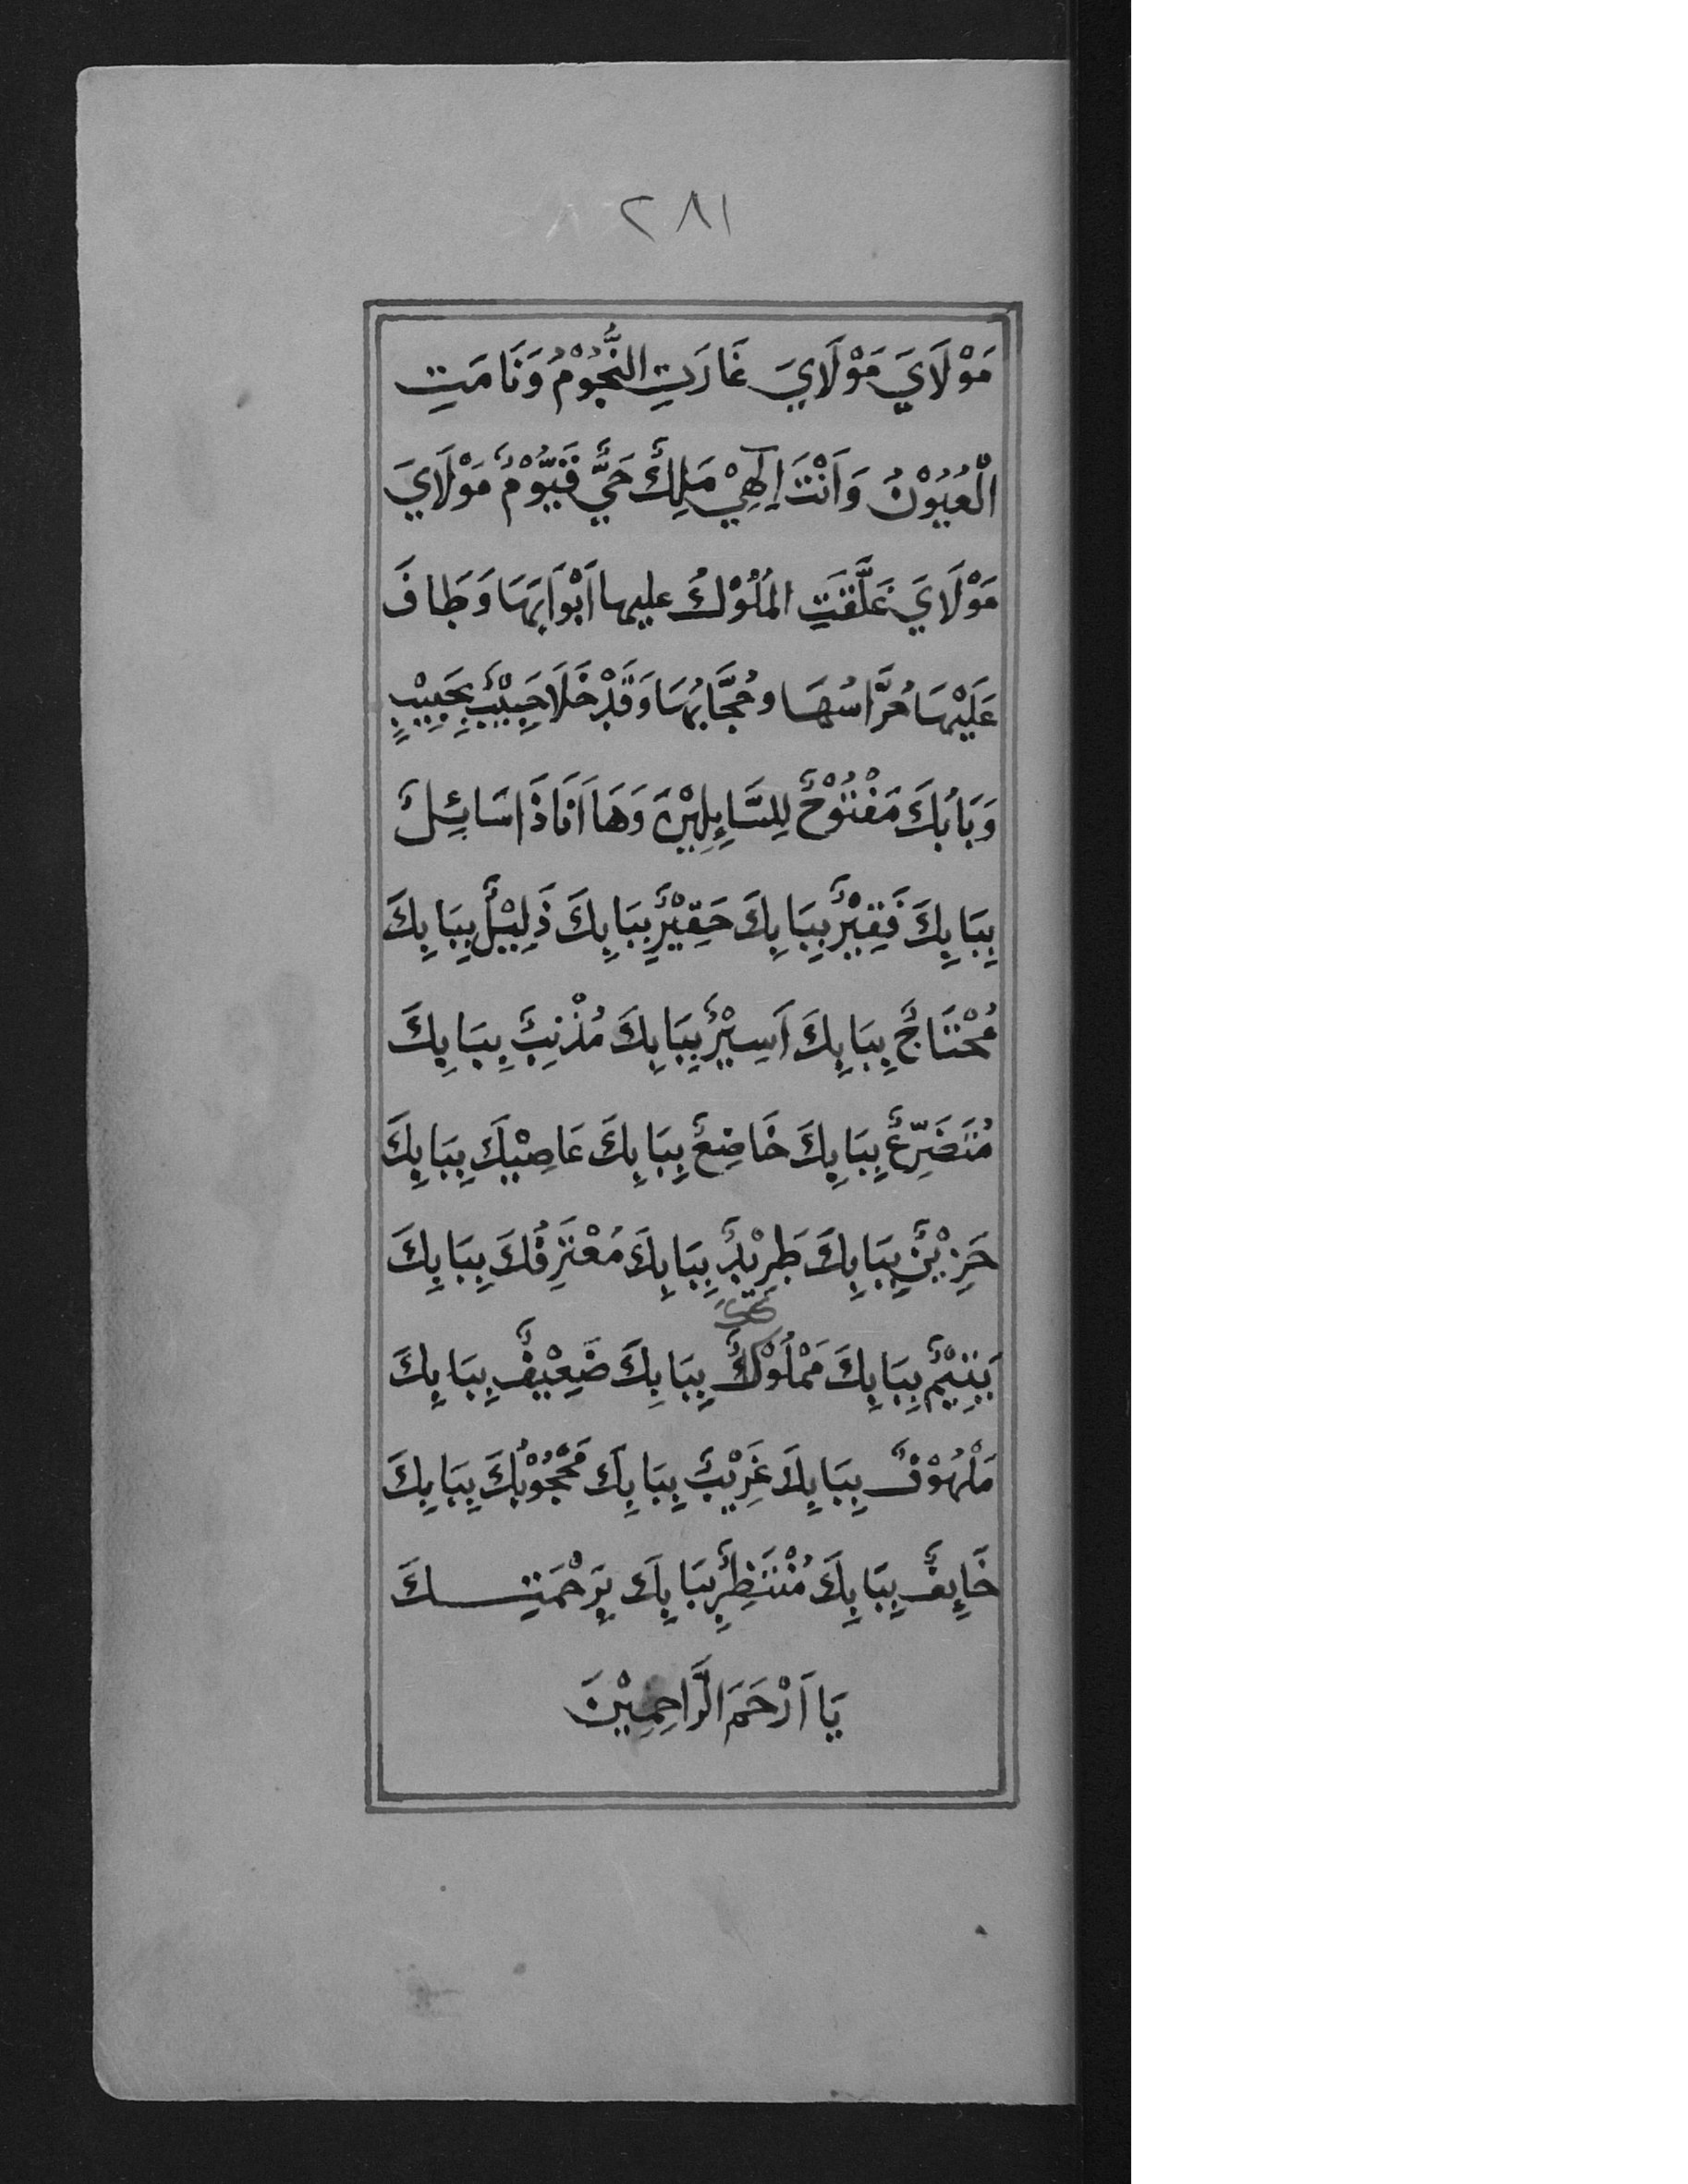 ٢٨١
مَوْلَايَ مَوْلَايَ غَارَتِ النُّجُوْمُ وَنَامَتِ
الْعُيُوْنُ وَاَنْتَ اِلٰهِيْ مَلِكٌ حَيٌّ قَيُّوْمٌ مَوْلَايَ
مَوْلَايَ غَلَّقَتِ المُلُوْكُ عليها اَبْوَابَهَا وَطَافَ
عَلَيْهَا حُرَّاسُهَا وحُجَّابُهَا وَقَدْ خَلَا حَبِيْبٌ بِحَبِيْبٍ
وَبَابُكَ مَفْتُوْحٌ لِلسَّايِلِيْنَ وَهَا اَنَا ذَا سَائِلٌ
بِبَابِكَ فَقِيْرٌ بِبَابِكَ حَقِيْرٌ بِبَابِكَ ذَلِيْلٌ بِبَابِكَ
مُحْتَاجٌ بِبَابِكَ اَسِيْرٌ بِبَابِكَ مُذْنِبٌ بِبَابِكَ
مُتَضَرِّعٌ بِبَابِكَ خَاضِعٌ بِبَابِكَ عَاصِيْكَ بِبَابِكَ
حَزِيْنٌ بِبَابِكَ طَرِيْدٌ بِبَابِكَ مُعْتَرِفُكَ بِبَابِكَ
يَتِيْمٌ بِبَابِكَ مَمْلُوْكٌ بِبَابِكَ ضَعِيْفٌ بِبَابِكَ
مَلْهُوْفٌ بِبَابِكَ غَرِيْبٌ بِبَابِكَ مَحْجُوْبُكَ بِبَابِكَ
خَايِفٌ بِبَابِكَ مُنْتَظِرٌ بِبَابِكَ بِرَحْمَتِكَ
يَا اَرْحَمَ الرَّاحِمِيْنَ